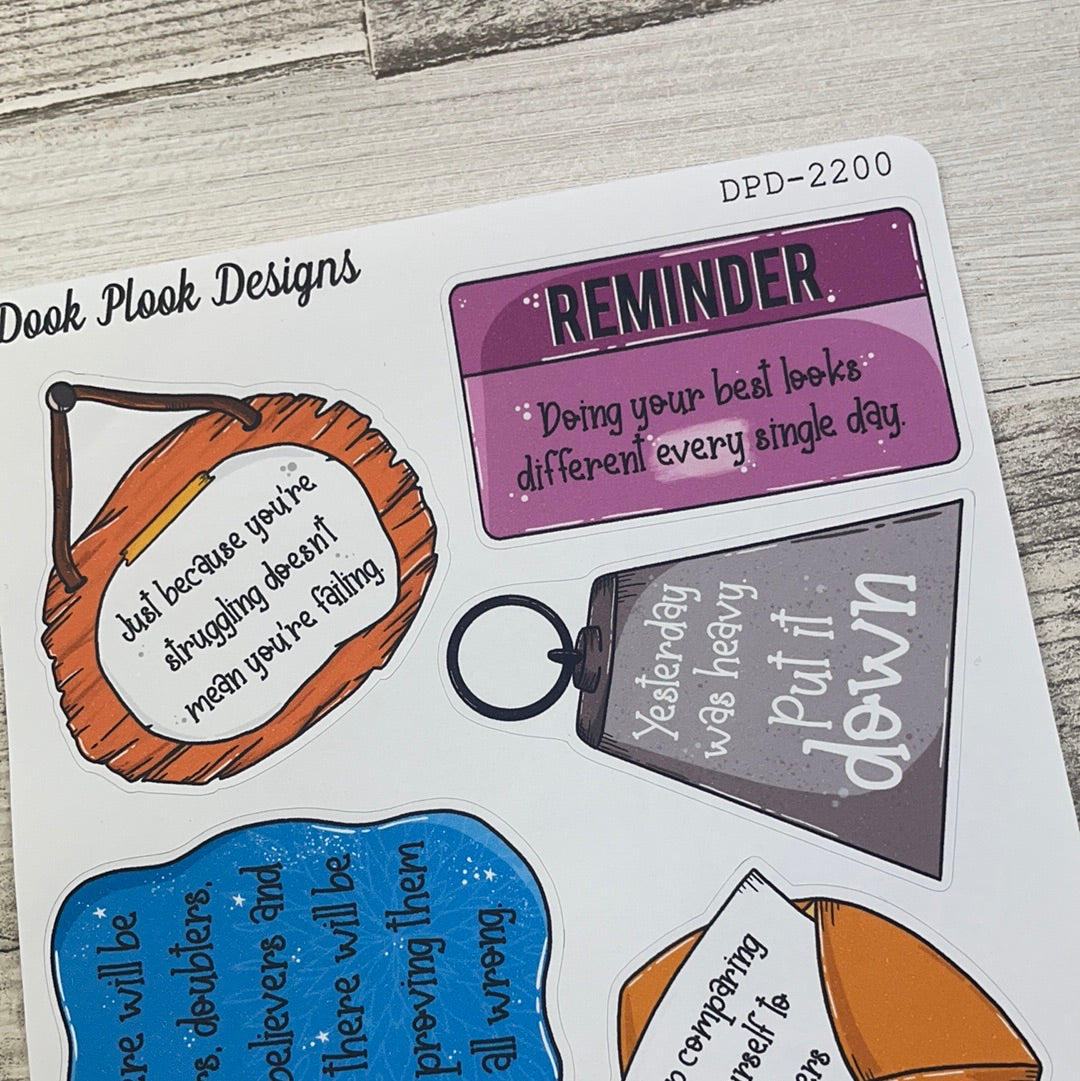 Dook Plook Designs
DPD-2200
REMINDER
Doing your best looks
different every single day.
Just because you're
struggling doesn't
mean you're failing.
Yesterday
was heavy.
Put it
down
will be
doubters,
believers and
there will be
proving them
all wrong.
comparing
to